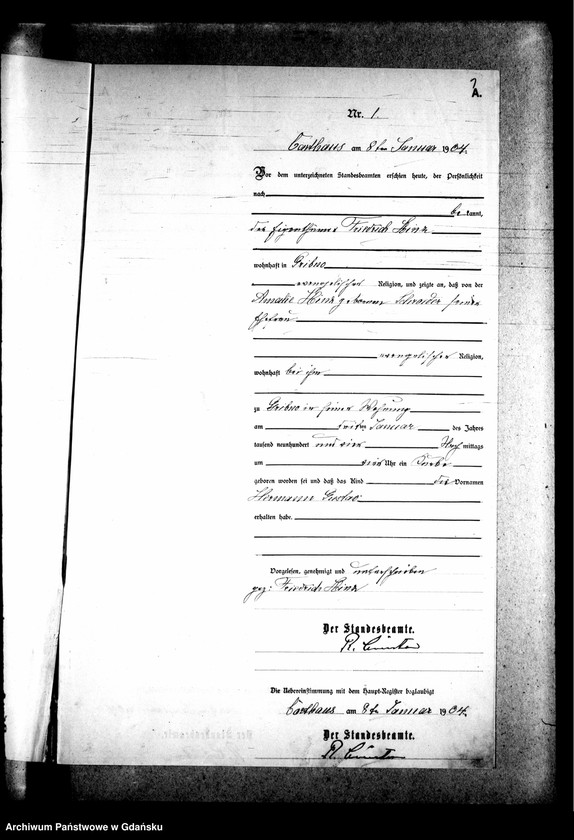 A.
Nr. 1.
Carthaus am 8ten Januar 1904.
Vor dem unterzeichneten Standesbeamten erschien heute, der Persönlichkeit
nach
be kannt,
der Eigenthümer Friedrich Hinz
wohnhaft in Gribno
evangelischer Religion, und zeigte an, daß von der
Amalie Hinz geborenen Schneider seiner
Ehefrau
evangelischer Religion,
wohnhaft bei ihm
zu Gribno in seiner Wohnung
am dritten Januar des Jahres
tausend neunhundert und vier Nach mittags
um vier Uhr ein Knabe
geboren worden sei und daß das Kind die Vornamen
Hermann Gustav
erhalten habe.
Vorgelesen, genehmigt und unterschrieben
gez: Friedrich Hinz
Der Standesbeamte.
R.
Die Uebereinstimmung mit dem Haupt-Register beglaubigt
Carthaus am 8ten Januar 1904.
Der Standesbeamte.
R.
Archiwum Państwowe w Gdańsku